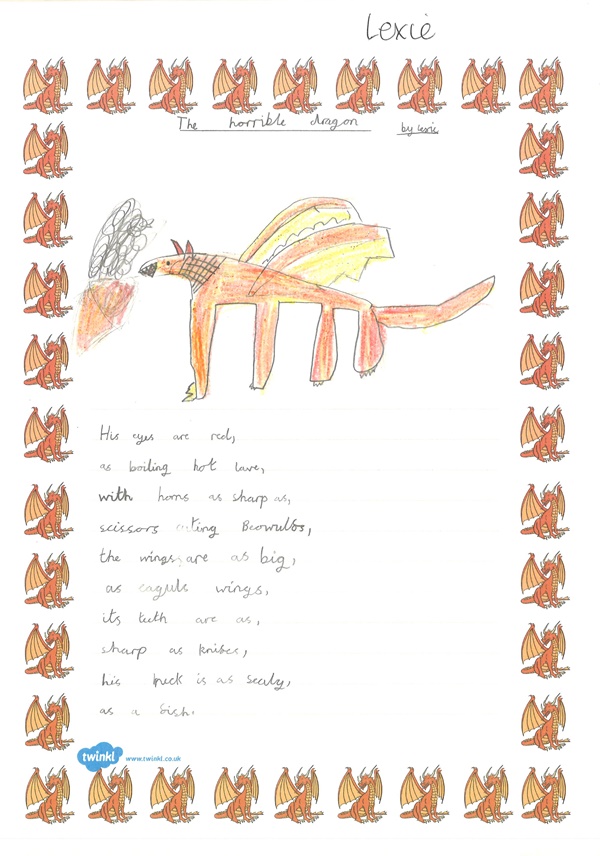 Lexie
The horrible dragon by lexie
His eyes are red,
as boiling hot lave,
with horns as sharp as,
scissors Beowulbs,
the wings are as big,
as eaguls wings,
its teeth are as,
sharp as knibes,
his neck is as scaly,
as a bish.
twinkl www.twinkl.co.uk